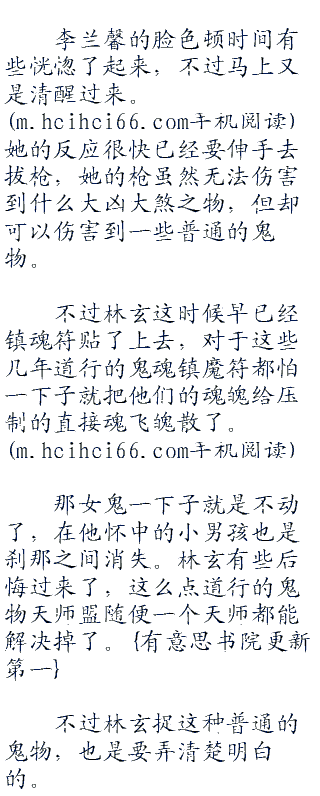 李兰馨的脸色顿时间有
些恍惚了起来，不过马上又
是清醒过来。
(m.hcihci66.com手机阅读)
她的反应很快已经要伸手去
拔枪，她的枪虽然无法伤害
到什么大凶大煞之物，但却
可以伤害到一些普通的鬼
物。
不过林玄这时候早已经
镇魂符贴了上去，对于这些
几年道行的鬼魂镇魔符都怕
一下子就把他们的魂魄给压
制的直接魂飞魄散了。
(m.hcihci66.com手机阅读)
那女鬼一下子就是不动
了，在他怀中的小男孩也是
刹那之间消失。林玄有些后
悔过来了，这么点道行的鬼
物天师盟随便一个天师都能
解决掉了。{有意思书院更新
第一}
不过林玄捉这种普通的
鬼物，也是要弄清楚明白
的。